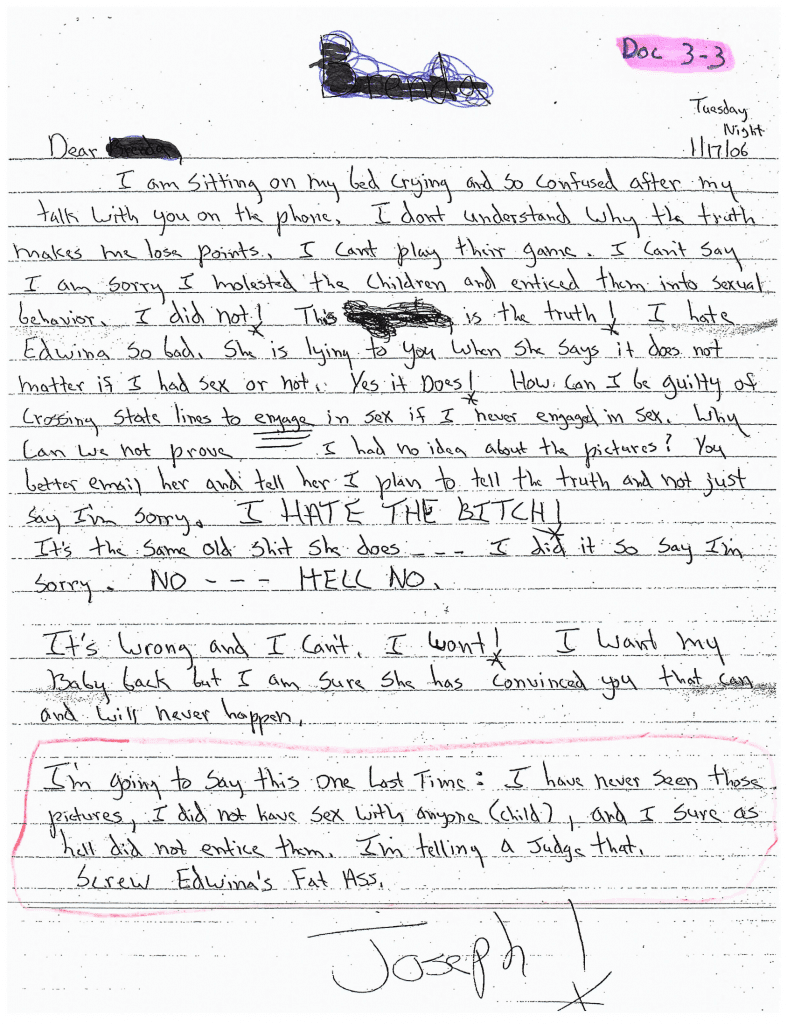 Doc 3-3
Tuesday
Night
1/17/06
Dear
I am sitting on my bed crying and so confused after my
talk with you on the phone. I dont understand why the truth
makes me lose points. I cant play their game. I can't say
I am sorry I molested the children and enticed them into sexual
behavior. I did not! This is the truth! I hate
Edwina so bad. She is lying to you when she says it does not
matter if I had sex or not. Yes it Does! How can I be guilty of
crossing state lines to engage in sex if I never engaged in sex. Why
can we not prove I had no idea about the pictures? You
better email her and tell her I plan to tell the truth and not just
say I'm sorry. I HATE THE BITCH!
It's the same old shit she does --- I did it so say I'm
sorry. NO --- HELL NO.
It's wrong and I can't. I wont! I want my
Baby back but I am sure she has convinced you that can
and will never happen.
I'm going to say this one Last Time: I have never seen those
pictures, I did not have sex with anyone (child), and I sure as
hell did not entice them. I'm telling a Judge that.
Screw Edwina's Fat Ass.
Joseph!